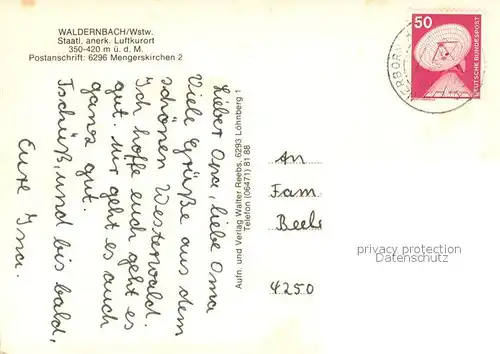 WALDERNBACH/Wstw.
Staatl. anerk. Luftkurort
350-420 m ü. d. M.
Postanschrift: 6296 Mengerskirchen 2
Lieber Opa, liebe Oma
Viele Grüße aus dem
schönen Westerwald.
Ich hoffe euch geht es
gut. Mir geht es auch
ganz gut.
Tschüß, und bis bald,
Eure Ina.
Aufn. und Verlag Walter Reebs, 6293 Löhnberg 1
Telefon (06471) 81 88
50
DEUTSCHE BUNDESPOST
An
Fam.
4250
privacy protection
Datenschutz